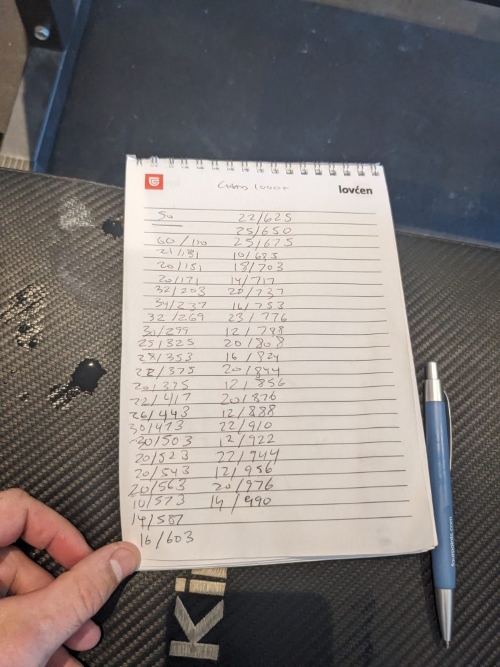 lovćen
50
60/110
21/131
20/151
20/171
32/203
34/237
32/269
30/299
25/325
28/353
22/375
20/395
22/417
26/443
30/473
30/503
20/523
20/543
20/563
10/573
14/587
16/603
22/625
25/650
25/675
10/685
18/703
14/717
20/737
16/753
23/776
12/788
20/808
16/824
20/844
12/856
20/876
12/888
22/910
12/922
22/944
12/956
20/976
14/990